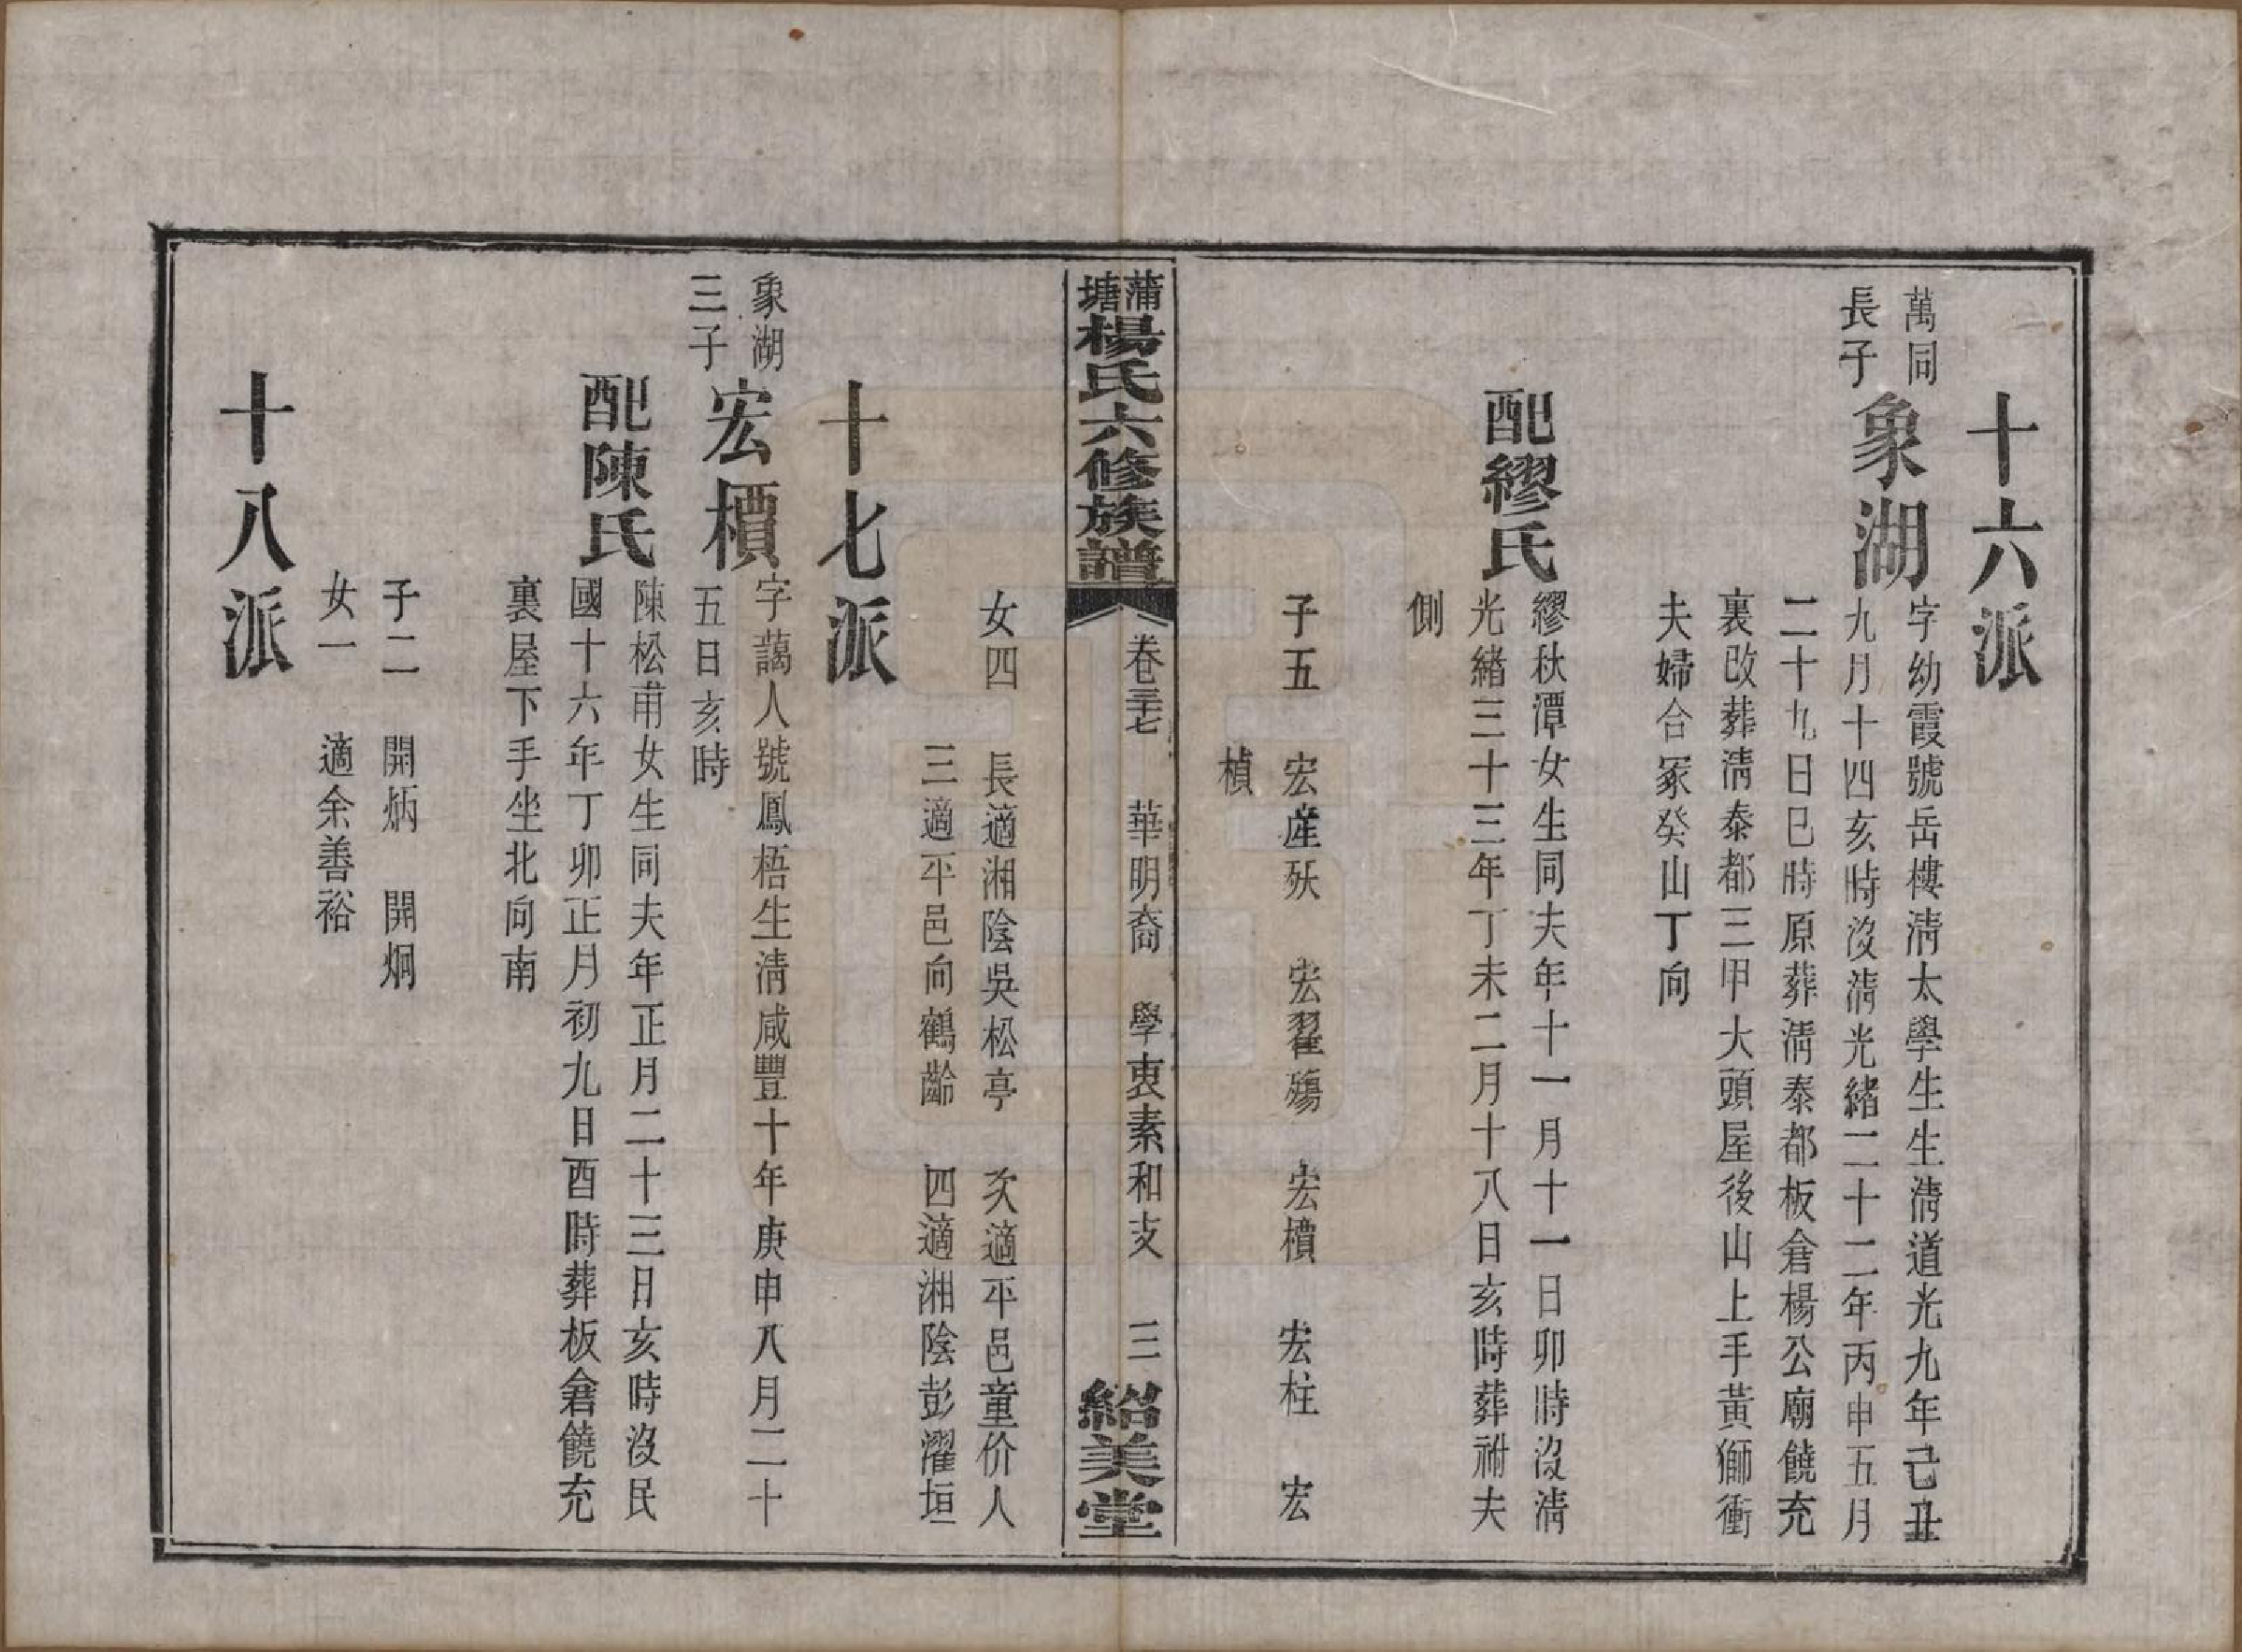 十六派
萬同
長子
象湖
字幼霞號岳樓淸太學生生淸道光九年己丑
九月十四亥時沒淸光緒二十二年丙申五月
二十九日巳時原葬淸泰都板倉楊公廟饒充
裏改葬淸泰都三甲大頭屋後山上手黃獅衝
夫婦合冢癸山丁向
配繆氏
繆秋潭女生同夫年十一月十一日卯時沒淸
光緒三十三年丁未二月十八日亥時葬祔夫
側
子五　宏産殀　宏翟殤　宏檟　宏柱　宏
楨
蒲塘楊氏六修族譜
卷三十七　華明裔　學衷素和支　三
紹美堂
女四　長適湘陰吳松亭　次適平邑童价人
三適平邑向鶴齡　四適湘陰彭濯垣
十七派
象湖
三子
宏檟
字藹人號鳳梧生淸咸豐十年庚申八月二十
五日亥時
配陳氏
陳松甫女生同夫年正月二十三日亥時沒民
國十六年丁卯正月初九日酉時葬板倉饒充
裏屋下手坐北向南
子二　開炳　開炯
女一　適余善裕
十八派